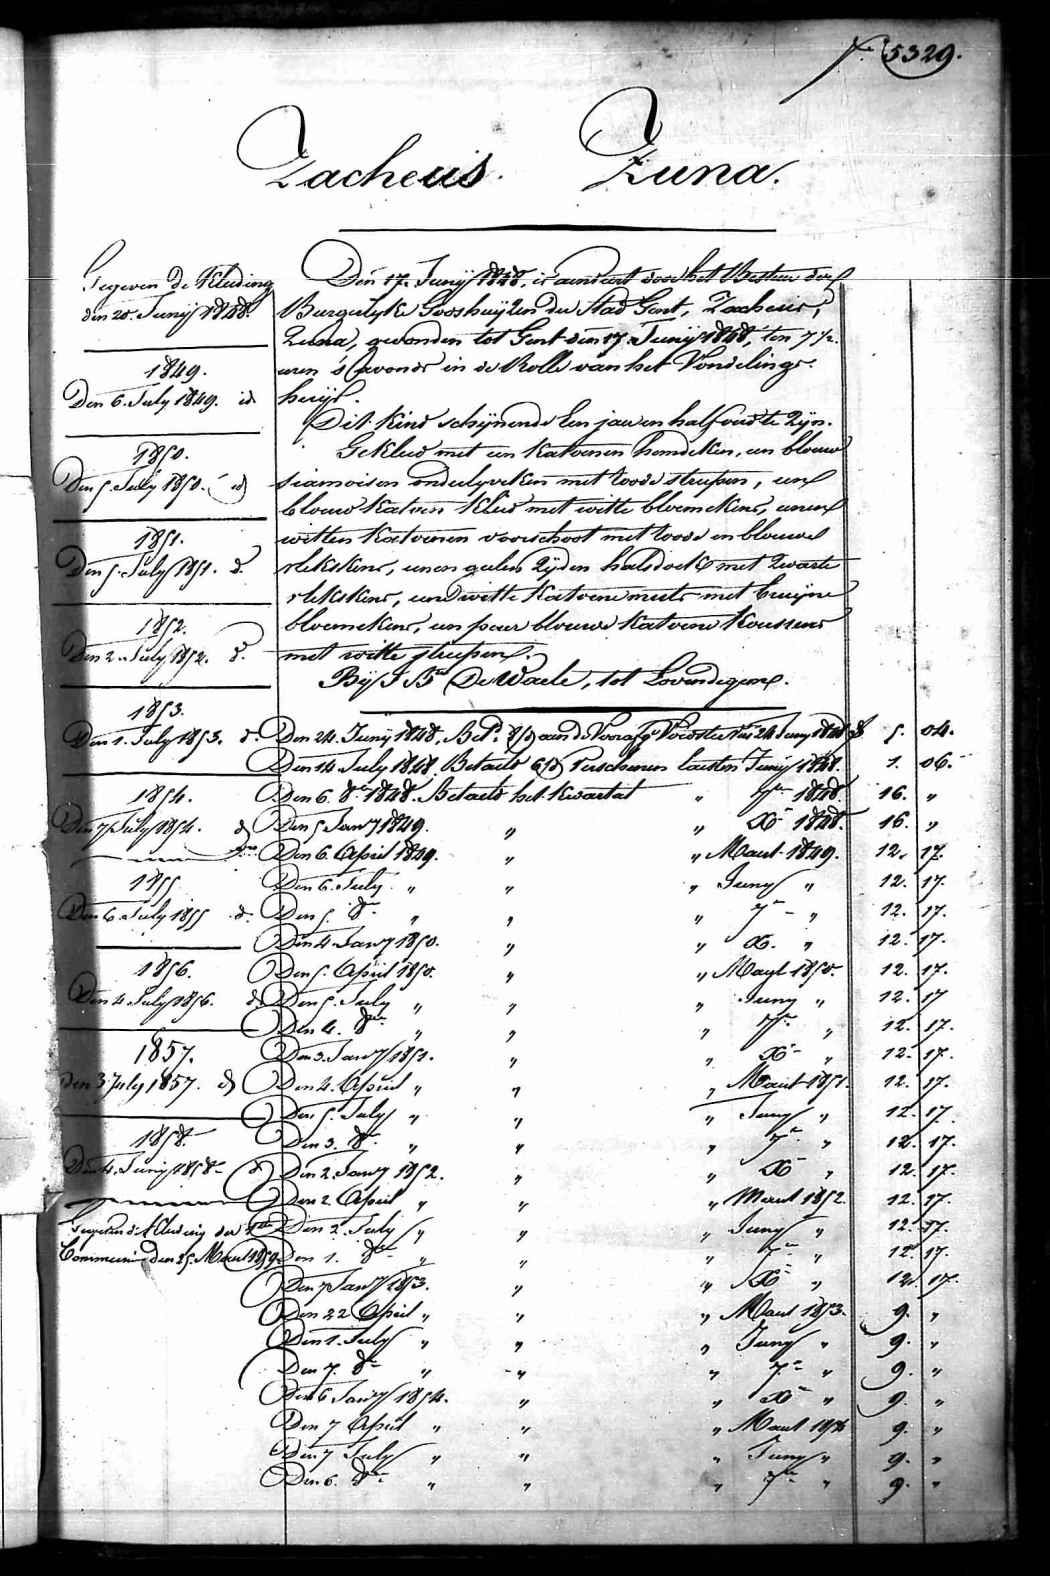 N.° 5329.
Zacheus Zuna.
Gegeven de Kleeding
den 20. Junij 1848.
1849.
Den 6. July 1849. id
1850.
Den 5. July 1850. id
1851.
Den 5. July 1851. d.
1852.
Den 2. July 1852. d.
1853.
Den 1. July 1853. d.
1854.
Den 7 July 1854. d
1855
Den 6. July 1855 d.
1856.
Den 4. July 1856. d
1857.
Den 3 July 1857. d
1858.
Den 4. Junij 1858 d
Gegeven de Kleeding der 1ste
Communie den 25. Maert 1859.
Den 17. Junij 1848, is aenveert door het Bestier der
Burgerlyke Godshuijzen der Stad Gent, Zacheus,
Zuna, gevonden tot Gent den 17. Junij 1848, ten 7 1/2.
uren 's avonds in de Rolle van het Vondelings-
huijs.
Dit kind schijnende Een jaer en half oud te zijn.
Gekleed met een katoenen hemdeken, een blouw
siamoisen onderlyveken met roode streepen, een
blouw katoen kleed met witte bloemekens, eenen
witten katoenen voorschoot met roode en blouwe
vlekskens, eenen gelen zijden halsdoek met zwarte
vlekskens, eene witte katoene muts met bruijne
bloemekens, een paer blouwe katoene koussens
met witte streepen.
Bij J. Bte De Waele, tot Lovendegem.
Den 24. Junij 1848. Bet.d aan de Voorsz. Voedster tot 24 Juny 1848 f 5. 04.
Den 14 July 1848. Betaeld verschenen laesten Junij 1848. 1. 06.
Den 6. 8.e 1848. Betaeld het kwartael " 7.e 1848. 16. "
Den 5 Janry 1849. " " X.e 1848. 16. "
Den 6. April 1849. " " Maert 1849. 12. 17.
Den 6. July " " " Juny " 12. 17.
Den 5. 8.e " " " 7.e " 12. 17.
Den 4. Janry 1850. " " X. " 12. 17.
Den 5. April 1850. " " Maert 1850. 12. 17.
Den 5. July " " " Juny " 12. 17
Den 4. 8.e " " " 7.e " 12. 17.
Den 3. Janry 1851. " " X.e " 12. 17.
Den 4. April " " " Maert 1851. 12. 17.
Den 5. July " " " Juny " 12. 17.
Den 3. 8.e " " " 7.e " 12. 17.
Den 2. Janry 1852. " " X.e " 12. 17.
Den 2. April " " " Maert 1852. 12. 17.
Den 2. July " " " Juny " 12. 17.
Den 1. 8.e " " " 7.e " 12. 17.
Den 7 Janry 1853. " " X.e " 12. 17.
Den 22 April " " " Maert 1853. 9. "
Den 1. July " " " Juny " 9. "
Den 7. 8.e " " " 7.e " 9. "
Den 6 Janry 1854. " " X.e " 9. "
Den 7 April " " " Maert 1854 9. "
Den 7 July " " " Juny " 9. "
Den 6. 8.e " " " 7.e " 9. "